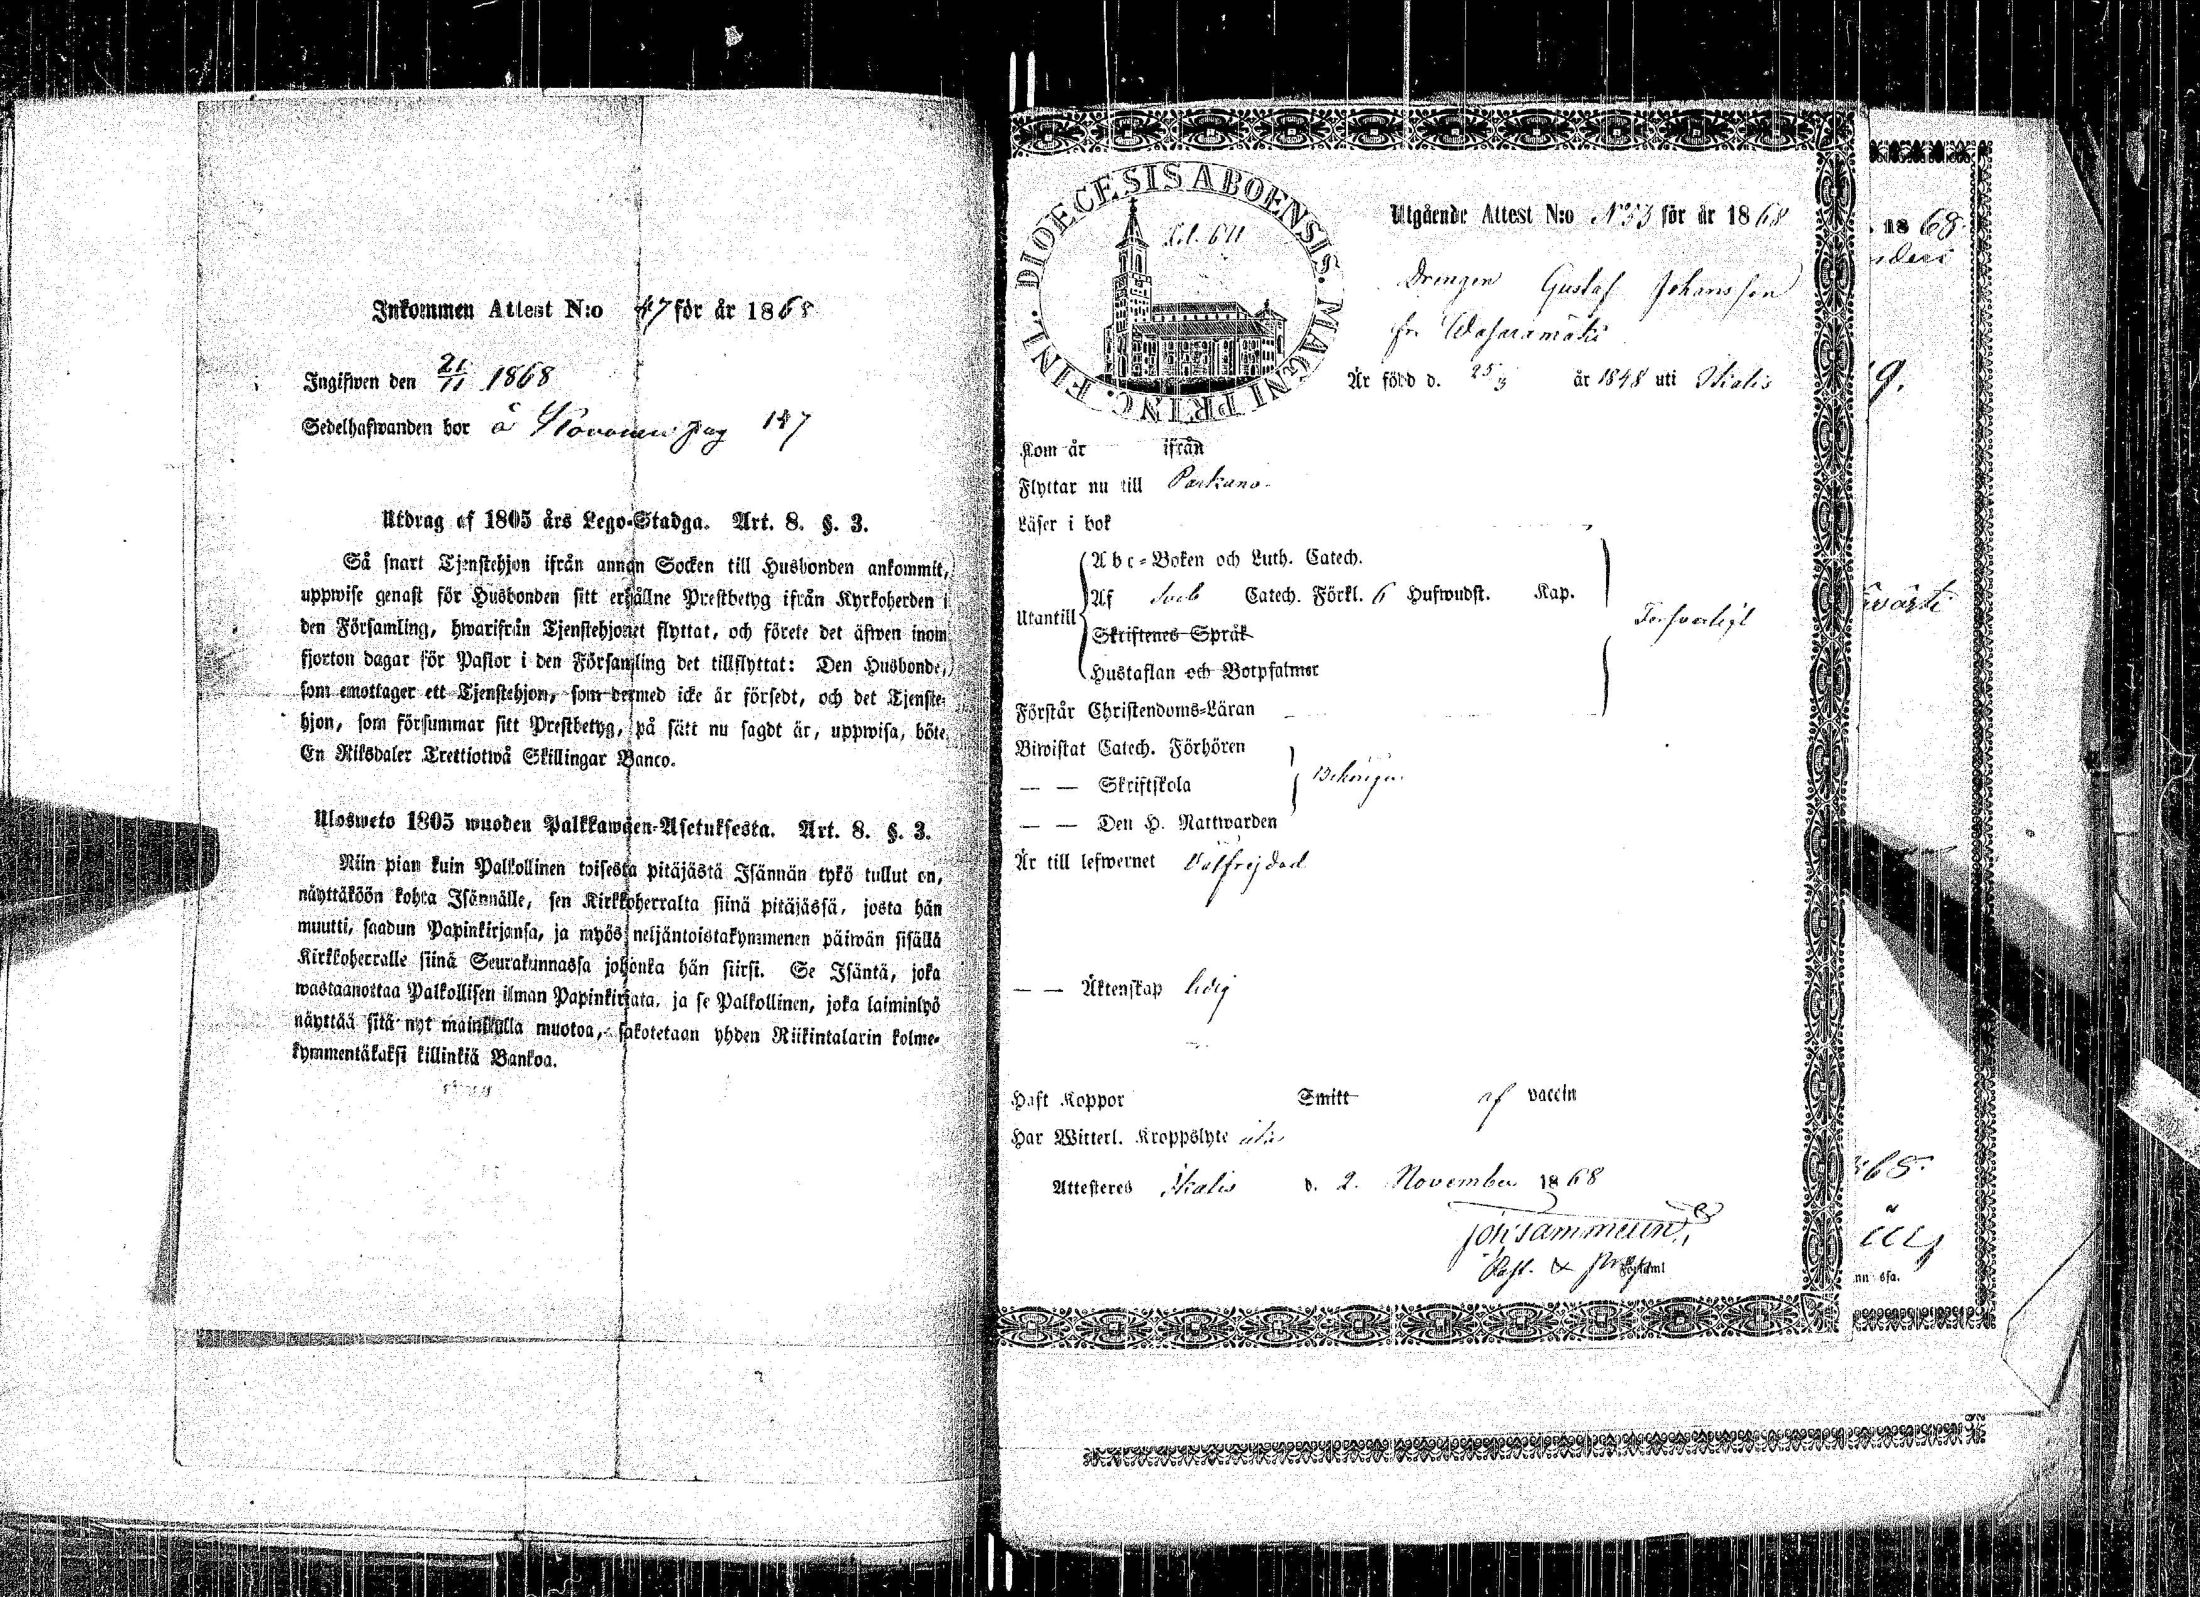 Inkommen Attest N:o 47 för år 1868
Ingifwen den 21/11 1868
Sedelhafwanden bor å pag 147
Utdrag af 1805 års Lego-Stadga. Art. 8. §. 3.
Så snart Tjenstehjon ifrån annan Socken till Husbonden ankommit,
uppwise genast för Husbonden sitt erhållne Prestbetyg ifrån Kyrkoherden i
den Församling, hwarifrån Tjenstehjonet flyttat, och förete det äfwen inom
fjorton dagar för Pastor i den Församling det tillflyttat: Den Husbonde,
som emottager ett Tjenstehjon, som dermed icke är försedt, och det Tjenste-
hjon, som försummar sitt Prestbetyg, på sätt nu sagdt är, uppwisa, böte
En Riksdaler Trettiotwå Skillingar Banco.
Ulosweto 1805 wuoden Palkkawäen-Asetuksesta. Art. 8. §. 3.
Niin pian kuin Palkollinen toisesta pitäjästä Isännän tykö tullut on,
näyttäköön kohta Isännälle, sen Kirkkoherralta siinä pitäjässä, josta hän
muutti, saadun Papinkirjansa, ja myös neljäntoistakymmenen päiwän sisällä
Kirkkoherralle siinä Seurakunnassa johonka hän siirsi. Se Isäntä, joka
wastaanottaa Palkollisen ilman Papinkirjata, ja se Palkollinen, joka laiminlyö
näyttää sitä nyt mainitulla muotoa, sakotetaan yhden Riikintalarin kolme-
kymmentäkaksi killinkiä Bankoa.
DIOECESIS ABOENSIS. MAGNI PRINC. FINL.
Utgående Attest N:o N°53 för år 1868
Drengen Gustaf Johansson
fr.
Är född d. 25/3 år 1848 uti Ikalis
Kom år ifrån
Flyttar nu till Parkano.
Läser i bok
Abc-Boken och Luth. Catech.
Utantill
Af Sveb Catech. Förkl. 6 Hufwudst. Kap.
Skriftenes Språk
Hustaflan och Botpsalmer
Försvarligt
Förstår Christendoms-Läran
Biwistat Catech. Förhören
— — Skriftskola
Behörigen
— — Den H. Nattwarden
Är till lefwernet Välfrejdad
— — Äktenskap ledig
Haft Koppor Smitt af vaccin
Har Witterl. Kroppslyte
Attesteras Ikalis d. 2. November 1868
Past.
18 68.